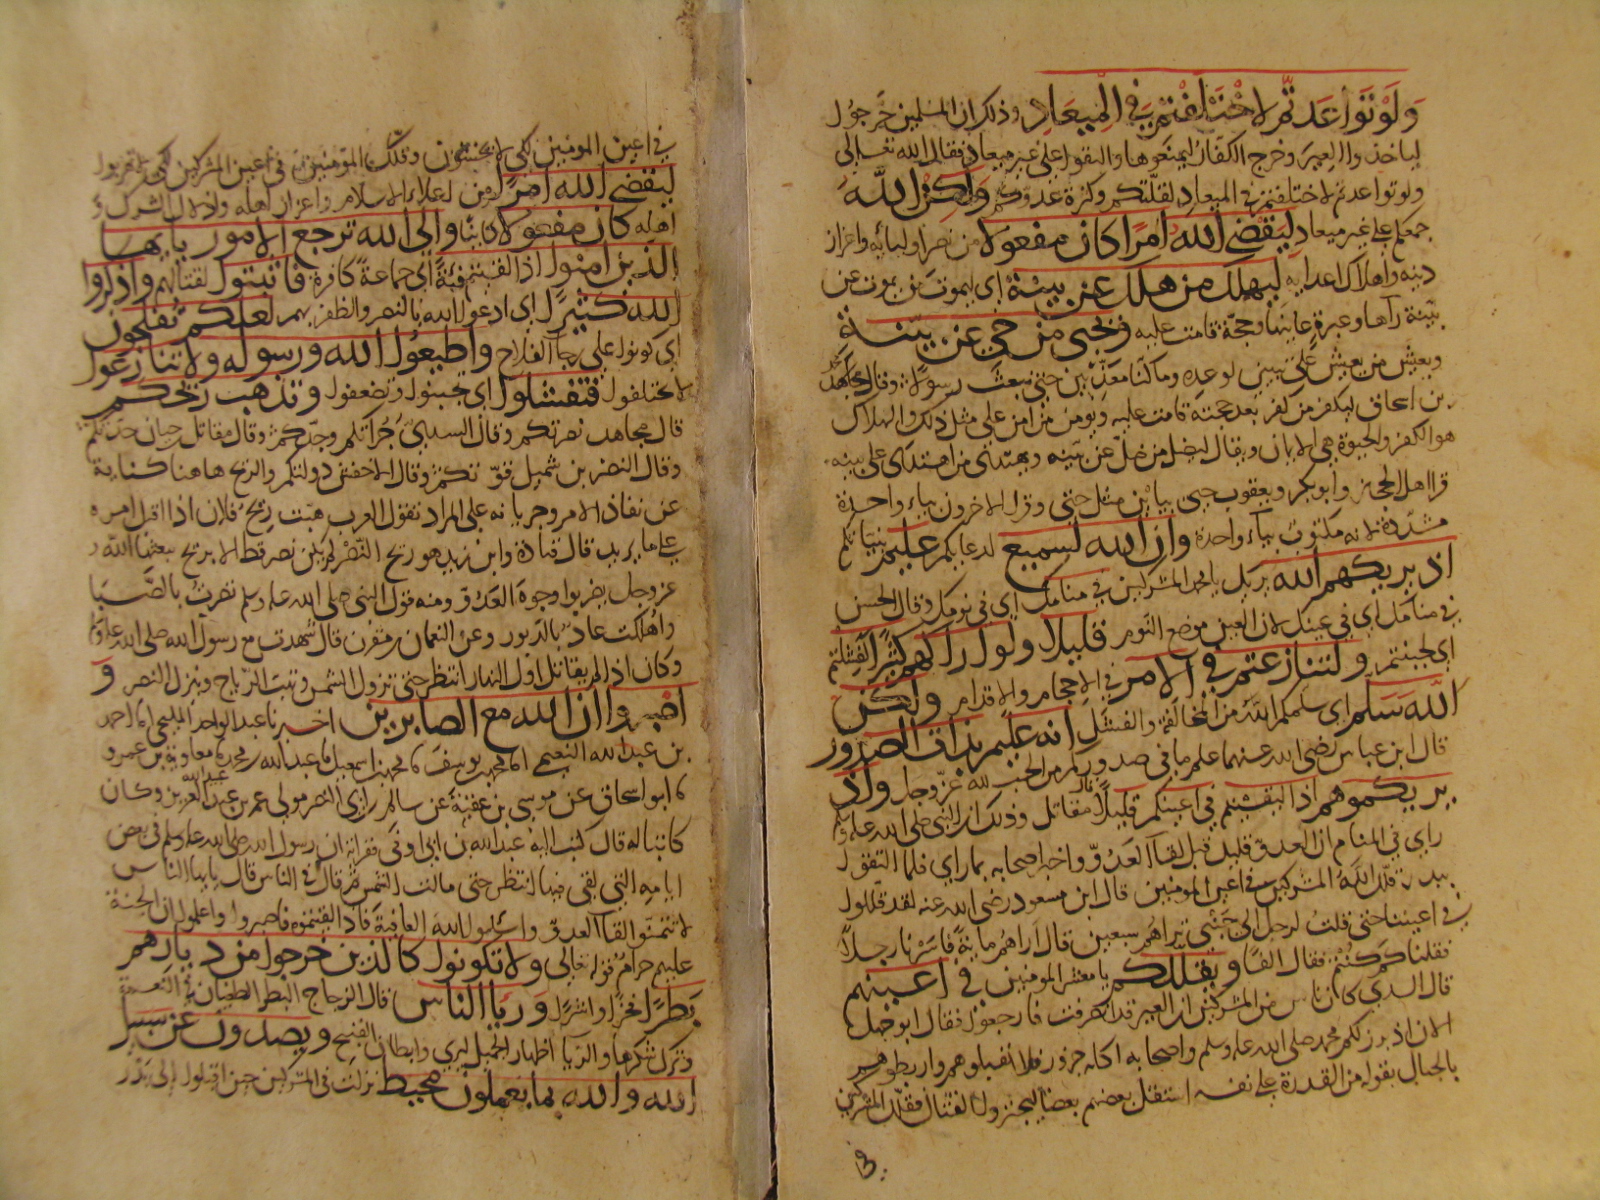 ولو تواعدتم لاختلفتم في الميعاد وذلك ان المسلمين خرجوا
لياخذوا العير وخرج الكفار ليمنعوها فالتقوا على غير ميعاد فقال الله تعالى
ولو تواعدتم لاختلفتم في الميعاد لقلتكم وكثرة عدوكم ولكن الله
جمعكم على غير ميعاد ليقضي الله امرا كان مفعولا من نصر اوليائه واعزاز
دينه واهلاك اعدايه ليهلك من هلك عن بينة اي ليموت من يموت عن
بينة راها وعبرة عاينها وحجة قامت عليه ويحيى من حي عن بينة
ويعيش من يعيش على بينة لوعده وما كنا معذبين حتى نبعث رسولا وقال محمد
بن اسحاق ليكفر من كفر بعد حجة قامت عليه ويومن من امن على مثل ذلك والهلاك
هو الكفر والحيوة هي الايمان ويقال ليضل من ضل عن بينه ويهتدي من اهتدى على بينه
قرا اهل الحجاز وابو بكر ويعقوب حيي بيايين مثل خشي وقرا الاخرون بياء واحدة
مشددة لانه مكتوب بياء واحدة وان الله لسميع لدعايكم عليم بنياتكم
اذ يريكهم الله يريك يا محمد المشركين في منامك اي في نومك وقال الحسن
في منامك اي في عينك لان العين موضع النوم قليلا ولو اراكهم كثيرا لفشلتم
اي لجبنتم ولتنازعتم في الامر في الاحجام والاقدام ولكن
الله سلم اي سلمكم الله من المخالفة والفشل انه عليم بذات الصدور
قال ابن عباس رضى الله عنهما علم ما في صدوركم من الحب لله عز وجل واذ
يريكموهم اذ التقيتم في اعينكم قليلا قال مقاتل وذلك ان النبي صلى الله عليه وسلم
راى في المنام ان العدو قليل قبل لقاء العدو واخبر اصحابه بما راى فلما التقوا
ببدر قلل الله المشركين في اعين المومنين قال ابن مسعود رضى الله عنه لقد قللوا
في اعيننا حتى قلت لرجل الى جنبي تراهم سبعين قال اراهم ماية فاسرنا رجلا
فقلنا كم كنتم فقال الفا ويقللكم يا معشر المومنين في اعينهم
قال السدي قال ناس من المشركين ان العير قد انصرفت فارجعوا فقال ابو جهل
الان اذ برز لكم محمد صلى الله عليه وسلم واصحابه اكلة جزور فلا تقتلوهم واربطوهم
بالحبال يقوله من القدرة على نفسه استقل بعضهم بعضا ليجترؤا على القتال فقلل المشركين
في اعين المومنين لكي لا يجبنوا وقلل المومنين في اعين المشركين لكي لا يهربوا
ليقضي الله امرا من اعلاء الاسلام واعزاز اهله واذلال الشرك و
اهله كان مفعولا كائنا والى الله ترجع الامور يا ايها
الذين امنوا اذا لقيتم فئة اي جماعة كافرة فاثبتوا لقتالهم واذكروا
الله كثيرا اي ادعوا الله بالنصر والظفر بهم لعلكم تفلحون
اي كونوا على رجا الفلاح واطيعوا الله ورسوله ولا تنازعوا
لا تختلفوا فتفشلوا اي تجبنوا وتضعفوا وتذهب ريحكم
قال مجاهد نصرتكم وقال السدي جراتكم وجدكم وقال مقاتل بن حيان حدتكم
وقال النضر بن شميل قوتكم وقال الاخفش دولتكم والريح هاهنا كناية
عن نفاذ الامر وجريانه على المراد تقول العرب هبت ريح فلان اذا اقبل امره
على ما يريد قال قتادة وابن زيد هو ريح النصر لم يكن نصر قط الا بريح يبعثها الله
عز وجل يضرب وجوه العدو ومنه قول النبي صلى الله عليه وسلم نصرت بالصبا
واهلكت عاد بالدبور وعن النعمان بن مقرن قال شهدت مع رسول الله صلى الله عليه وسلم
وكان اذا لم يقاتل اول النهار انتظر حتى تزول الشمس وتهب الرياح وينزل النصر و
اصبروا ان الله مع الصابرين اخبرنا عبد الواحد المليحي انا احمد
بن عبد الله النعيمي انا محمد بن يوسف نا محمد بن اسمعيل نا عبد الله بن محمد نا معاوية بن عمرو
نا ابو اسحاق عن موسى بن عقبة عن سالم ابي النضر مولى عمر بن عبيد الله وكان
كاتبا له قال كتب اليه عبد الله بن ابي اوفى فقراته ان رسول الله صلى الله عليه وسلم في بعض
ايامه التي لقي فيها انتظر حتى مالت الشمس ثم قال في الناس قال يا ايها الناس
لا تتمنوا لقاء العدو واسئلوا الله العافية فاذا لقيتموهم فاصبروا واعلموا ان الجنة
عليهم حرام قوله تعالى ولا تكونوا كالذين خرجوا من ديارهم
بطرا فخرا واشرا ورياء الناس قال الزجاج البطر الطغيان في النعمة
وترك شكرها والريا اظهار الجميل ليرى وابطان القبيح ويصدون عن سبيل
الله والله بما يعملون محيط نزلت في المشركين حين اقبلوا الى بدر